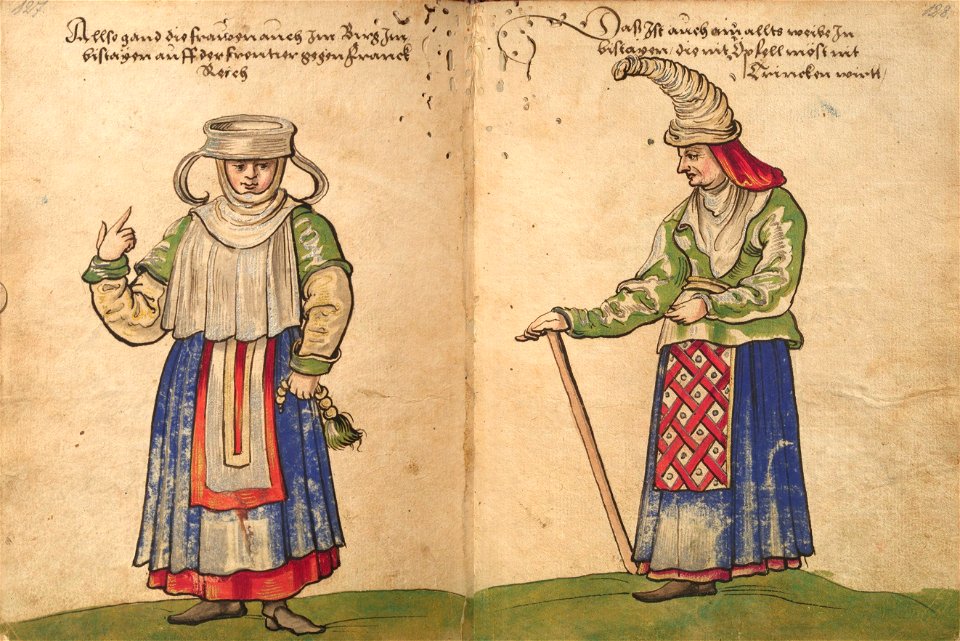 127.
Allso gand die frawen auch Im Birg Im
biscayen auff der frontier gegen Franck
Reich
128.
Daß Ist auch ain allts weibe In
biscayen die mit Öpfell most
Trincken wirtt